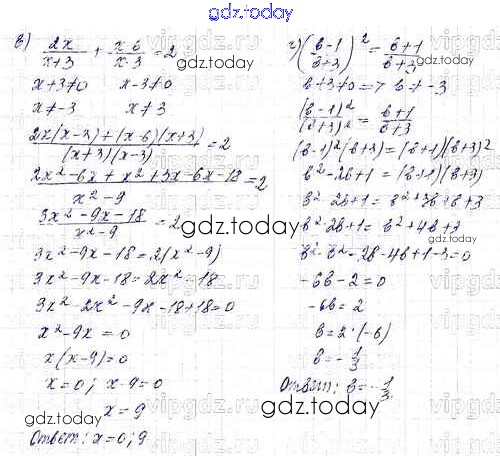 gdz.today
в) 2x/(x+3) + (x-6)/(x-3) = 2
x+3≠0 x-3≠0
x≠-3 x≠3
(2x(x-3)+(x-6)(x+3))/((x+3)(x-3)) = 2
(2x²-6x+x²+3x-6x-18)/(x²-9) = 2
(3x²-9x-18)/(x²-9) = 2
3x²-9x-18=2(x²-9)
3x²-9x-18=2x²-18
3x²-2x²-9x-18+18=0
x²-9x=0
x(x-9)=0
x=0; x-9=0
x=9
Ответ: x=0; 9
г) ((b-1)/(b+3))² = (b+1)/(b+3)
b+3≠0 => b≠-3
(b-1)²/(b+3)² = (b+1)/(b+3)
(b-1)²(b+3)=(b+1)(b+3)²
b²-2b+1=(b+1)(b+3)
b²-2b+1=b²+3b+b+3
b²-2b+1=b²+4b+3
b²-b²-2b-4b+1-3=0
-6b-2=0
-6b=2
b=2:(-6)
b=-1/3
Ответ: b=-1/3
gdz.today